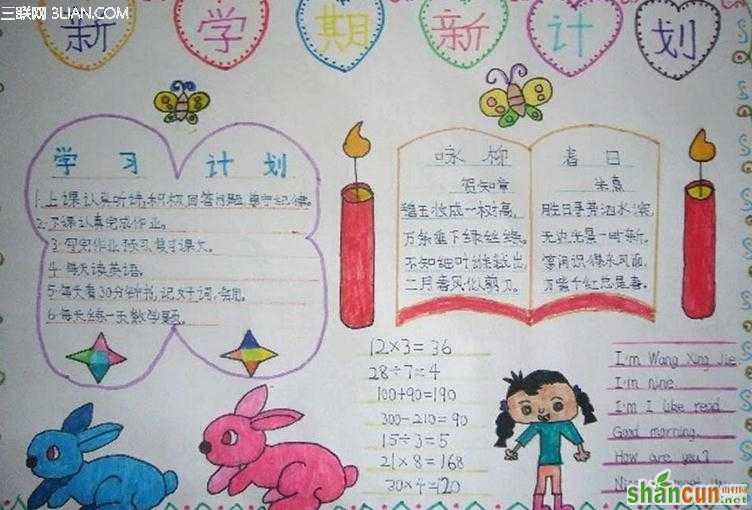 三联网 3LIAN.COM
新学期新计划
学习计划
1.上课认真听讲,积极回答问题,遵守纪律。
2.下课认真完成作业。
3.写完作业预习复习课文。
4.每天读英语。
5.每天看30分钟书,记好词,会用。
6.每天练一页数学题。
咏柳
贺知章
碧玉妆成一树高,
万条垂下绿丝绦。
不知细叶谁裁出,
二月春风似剪刀。
春日
朱熹
胜日寻芳泗水滨,
无边光景一时新。
等闲识得东风面,
万紫千红总是春。
12×3=36
28÷7=4
100+90=190
300-210=90
15÷3=5
21×8=168
30×4=120
I'm Wang Xing Jie
I'm nine.
I'm I like read.
Good morning.
How are you?
shancun
.net